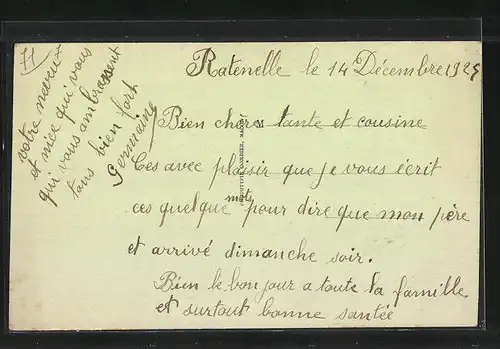 Ratenelle le 14 Décembre 192
Bien chere tante et cousine
Ces avec plaisir que je vous écrit
ces quelque mots pour dire que mon père
et arrivé dimanche soir.
Bien le bonjour a toute la famille
et surtout bonne santée
votre neveu
et niece qui vous
qui vous ambrassent
tous bien fort
Germaine